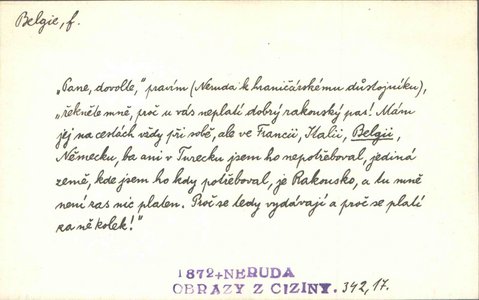 Belgie, f.
„Pane, dovolte,“ pravím (Neruda k hraničářskému důstojníku),
„řekněte mně, proč u vás neplatí dobrý rakouský pas! Mám
jej na cestách vždy při sobě, ale ve Francii, Italii, Belgii,
Německu, ba ani v Turecku jsem ho nepotřeboval, jediná
země, kde jsem ho kdy potřeboval, je Rakousko, a tu mně
není zas nic platen. Proč se tedy vydávají a proč se platí
za ně kolek!“
1872+NERUDA
OBRAZY Z CIZINY. 342,17.